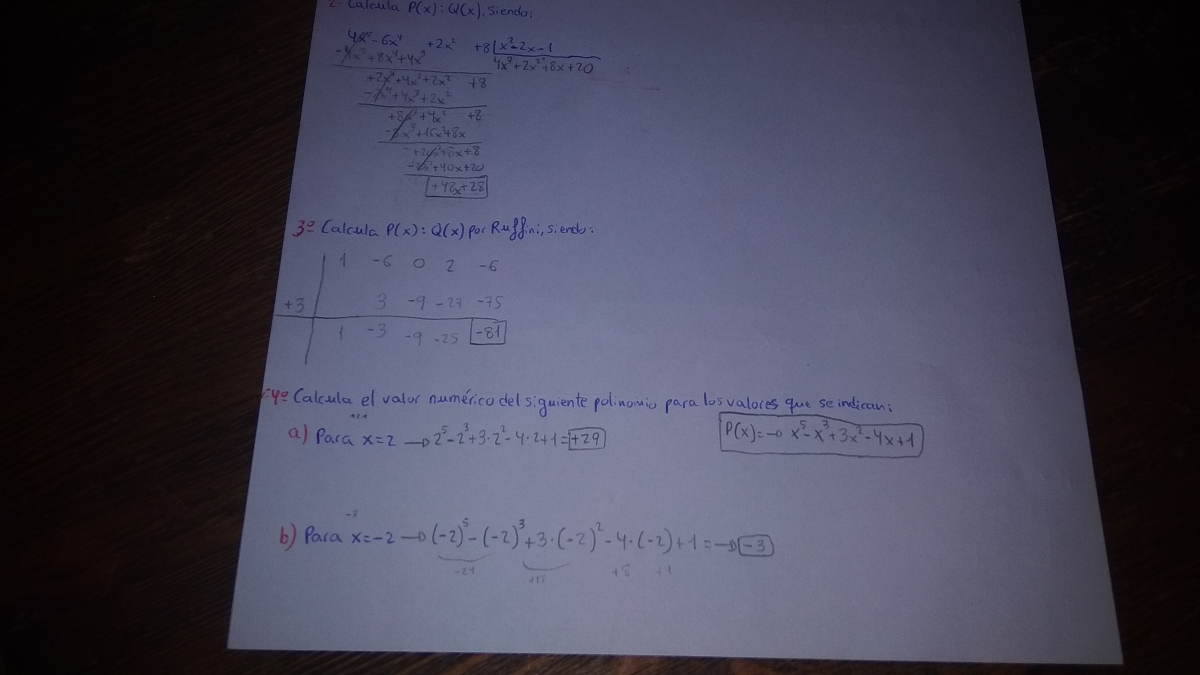 2- Calcula P(x): Q(x), siendo:
4x⁵-6x⁴ +2x² +8 | x²-2x-1
-4x⁵+8x⁴+4x³ 4x³+2x²+8x+20
+2x⁴+4x³+2x² +8
-2x⁴+4x³+2x²
+8x³+4x² +8
-8x³+16x²+8x
+20x²+8x+8
-20x²+40x+20
+48x+28
3º Calcula P(x): Q(x) por Ruffini, siendo:
1 -6 0 2 -6
+3 3 -9 -27 -75
1 -3 -9 -25 -81
4º Calcula el valor numérico del siguiente polinomio para los valores que se indican:
a) Para x=2 → 2⁵-2³+3·2²-4·2+1= +29
P(x)=→ x⁵-x³+3x²-4x+1
b) Para x=-2 → (-2)⁵-(-2)³+3·(-2)²-4·(-2)+1=→ -3
-24 +12 +8 +1